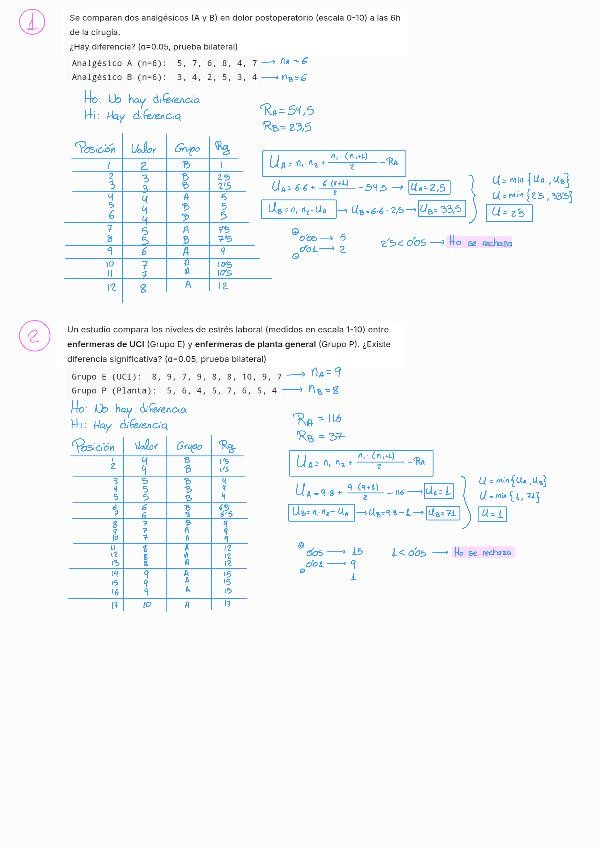 1
Se comparan dos analgésicos (A y B) en dolor postoperatorio (escala 0-10) a las 6h
de la cirugía.
¿Hay diferencia? (α=0.05, prueba bilateral)
Analgésico A (n=6): 5, 7, 6, 8, 4, 7 → nA = 6
Analgésico B (n=6): 3, 4, 2, 5, 3, 4 → nB = 6
Ho: No hay diferencia
Hi: Hay diferencia
RA = 54,5
RB = 23,5
Posición Valor Grupo Rg
1 2 B 1
2 3 B 2'5
3 3 B 2'5
4 4 A 5
5 4 B 5
6 4 B 5
7 5 A 7'5
8 5 B 7'5
9 6 A 9
10 7 A 10'5
11 7 A 10'5
12 8 A 12
UA = n₁·n₂ + n₁·(n₁+1)/2 - RA
UA = 6·6 + 6·(6+1)/2 - 54,5 → UA = 2,5
UB = n₁·n₂ - UA → UB = 6·6 - 2,5 → UB = 33,5
U = min {UA, UB}
U = min {2'5, 33'5}
U = 2'5
0'05 → 5
0'01 → 2
2'5 < 0'05 → Ho se rechaza
2
Un estudio compara los niveles de estrés laboral (medidos en escala 1-10) entre
enfermeras de UCI (Grupo E) y enfermeras de planta general (Grupo P). ¿Existe
diferencia significativa? (α=0.05, prueba bilateral)
Grupo E (UCI): 8, 9, 7, 9, 8, 8, 10, 9, 7 → nA = 9
Grupo P (Planta): 5, 6, 4, 5, 7, 6, 5, 4 → nB = 8
Ho: No hay diferencia
Hi: Hay diferencia
RA = 116
RB = 37
Posición Valor Grupo Rg
1 4 B 1'5
2 4 B 1'5
3 5 B 4
4 5 B 4
5 5 B 4
6 6 B 6'5
7 6 B 6'5
8 7 B 9
9 7 A 9
10 7 A 9
11 8 A 12
12 8 A 12
13 8 A 12
14 9 A 15
15 9 A 15
16 9 A 15
17 10 A 17
UA = n₁·n₂ + n₁·(n₁+1)/2 - RA
UA = 9·8 + 9·(9+1)/2 - 116 → UA = 1
UB = n₁·n₂ - UA → UB = 9·8 - 1 → UB = 71
U = min {UA, UB}
U = min {1, 71}
U = 1
0'05 → 15
0'01 → 9
1
1 < 0'05 → Ho se rechaza